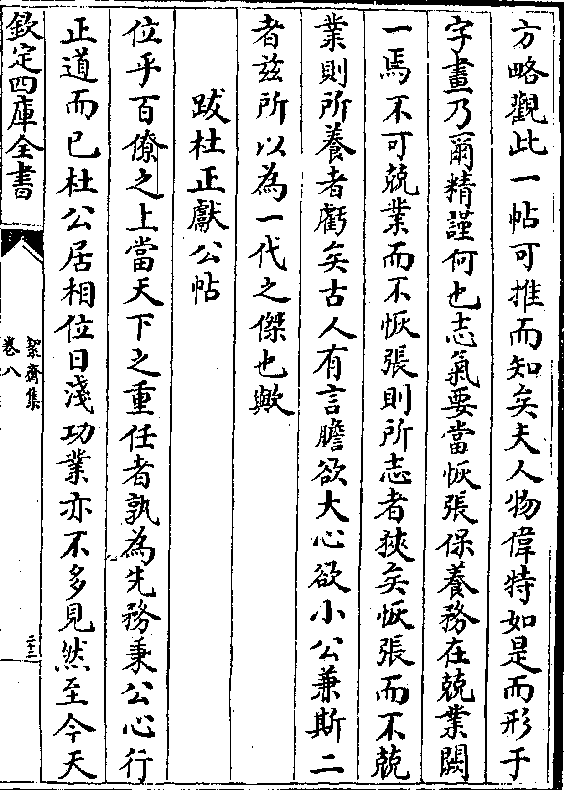 方略觀此一帖可推而知矣夫人物偉特如是而形于
字畫乃爾精謹何也志氣要當恢張保養務在兢業闕
一焉不可兢業而不恢張則所志者狹矣恢張而不兢
業則所養者虧矣古人有言膽欲大心欲小公兼斯二
者兹所以為一代之傑也歟
跋杜正獻公帖
位乎百僚之上當天下之重任者孰為先務秉公心行
正道而已杜公居相位日淺功業亦不多見然至今天
欽定四庫全書
絜齋集
卷八
二十二